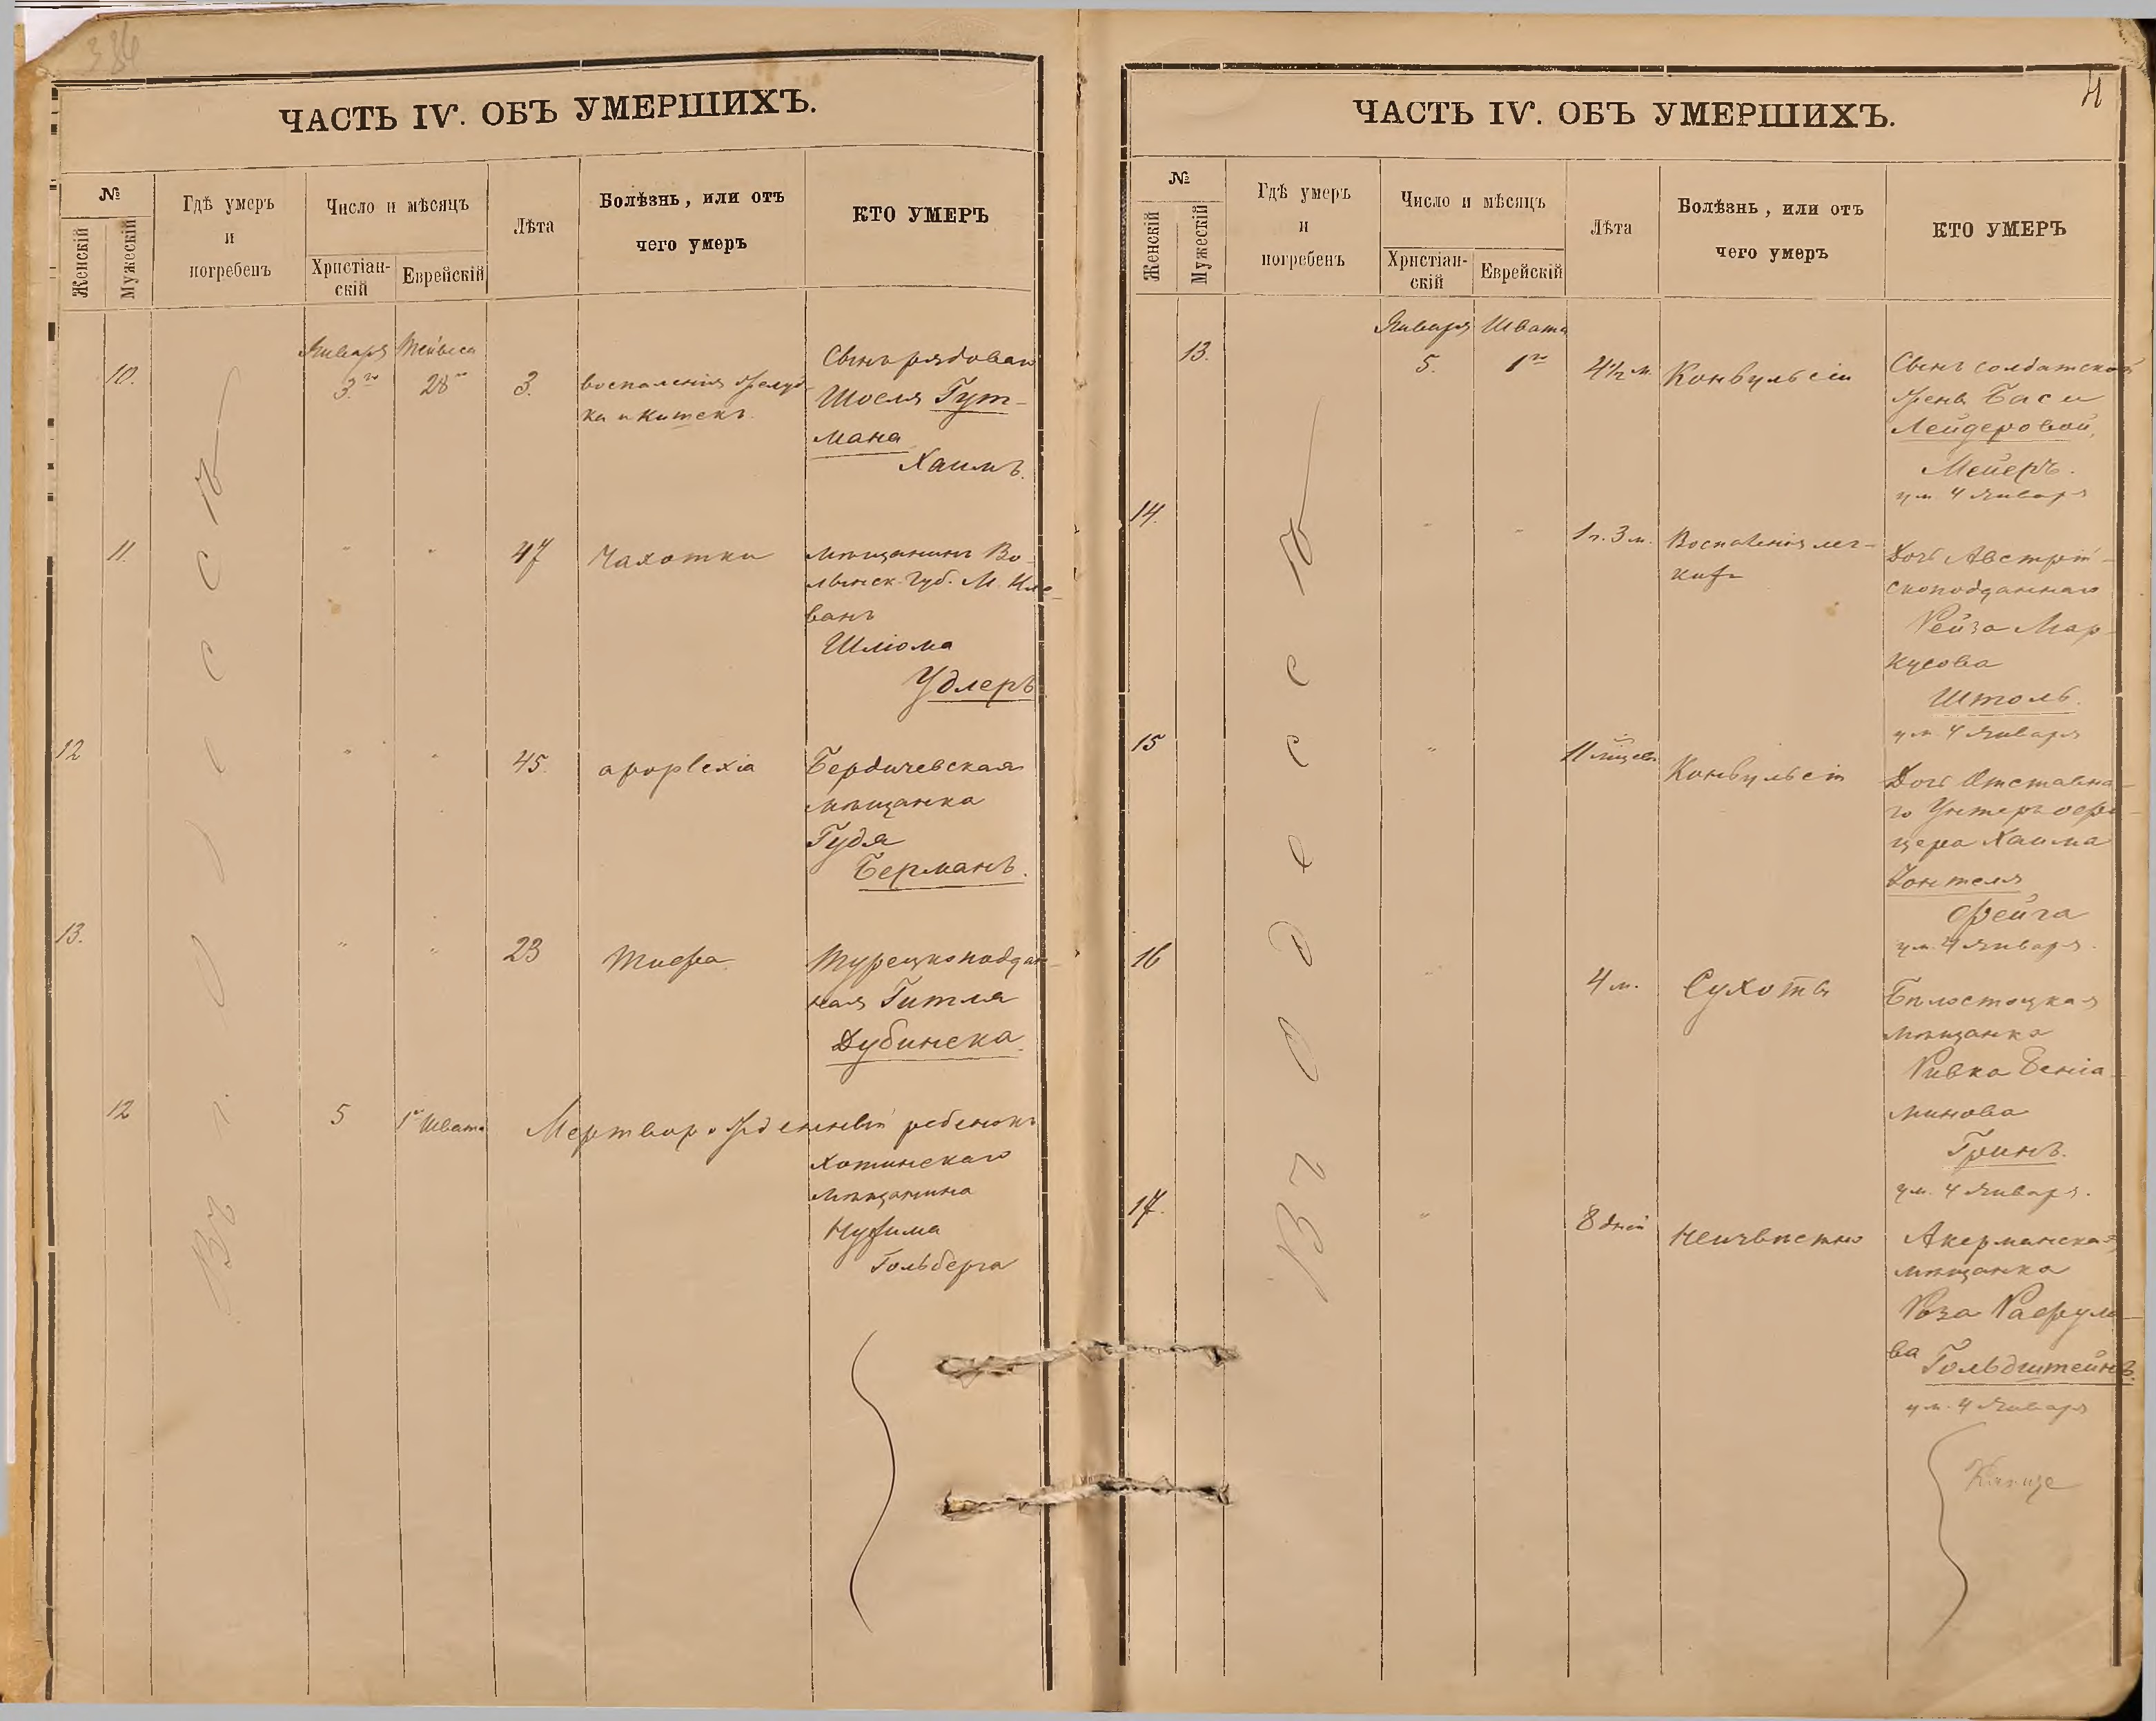 336
ЧАСТЬ IV. ОБЪ УМЕРШИХЪ.
№
Женскій
Мужескій
Гдѣ умеръ
и
погребенъ
Число и мѣсяцъ
Христіан-
скій
Еврейскій
Лѣта
Болѣзнь, или отъ
чего умеръ
КТО УМЕРЪ
Въ г. Одессѣ
10.
Января
3го
Тейвеса
28го
3.
воспаленія желуд-
ка и кишекъ
Сынъ рядоваго
Шоеля Гут-
мана
Хаимъ.
11.
"
"
47
Чахотки
мѣщанинъ Во-
лынск. Губ. М. Кле-
вань
Шліома
Удлеръ
12
"
"
45.
apoplexia
Бердичевская
мѣщанка
Гудя
Берманъ.
13.
"
"
23
Тифа
Турецкоподдан-
ная Гитля
Дубинска.
12
5
1го Швата
Мертворожденный ребенокъ
Хотинскаго
мѣщанина
Нухима
Гольберга
4
ЧАСТЬ IV. ОБЪ УМЕРШИХЪ.
№
Женскій
Мужескій
Гдѣ умеръ
и
погребенъ
Число и мѣсяцъ
Христіан-
скій
Еврейскій
Лѣта
Болѣзнь, или отъ
чего умеръ
КТО УМЕРЪ
Въ г. Одессѣ
13.
Января
5.
Швата
1го
4½ м.
Конвульсіи
Сынъ солдатской
жены Баси
Лейдеровой,
Мейеръ.
ум. 4 Января
14.
"
"
1 г. 3 м.
Воспаленія лег-
кихъ
Дочь Австрій-
скоподданнаго
Рейза Мар-
кусова
Штоль.
ум. 4 Января
15
"
11 мѣсяц.
Конвульсій
Дочь Отставна-
го Унтеръ офи-
цера Хаима
Фейга
ум. 4 Января.
16
"
4 м.
Сухоты
Бѣлостоцкая
мѣщанка
Ривка Беніа-
минова
Гринъ.
ум. 4 Января.
17.
"
8 дней
Неизвѣстно
Акерманская
мѣщанка
Роза Рафуло-
ва Гольдштейнъ.
ум. 4 Января